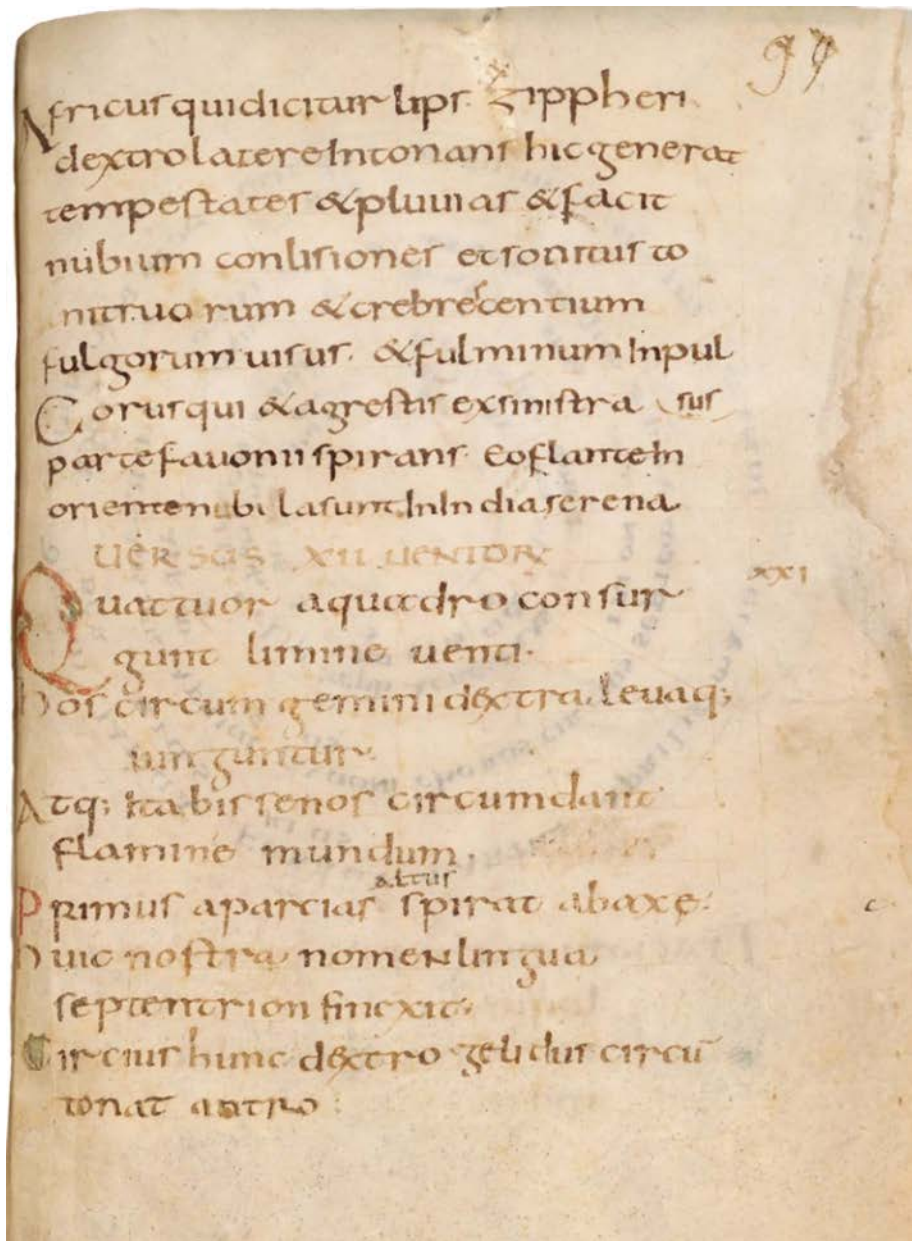 97
Africus qui dicitur lips. Zippheri
dextro latere intonans hic generat
tempestates & pluuias & facit
nubium conlisiones et sonitus to
nitruo rum & crebrescentium
fulgorum uisus. & fulminum inpul
Corus qui & agrestis ex sinistra sus
parte fauonii spirans. Eo flante in
oriente nubila sunt. In India serena
UERSUS XII UENTOR
Quattuor a quadro consur xxi
gunt limine uenti.
Hos circum gemini dextra leuaq;
iunguntur
Atq; ita bis senos circumdant
flamine mundum.
altus
Primus aparcias spirat ab axe.
Huic nostra nomen lingua
septentrion finexit.
Circius hunc dextro gelidus circū
tonat antro